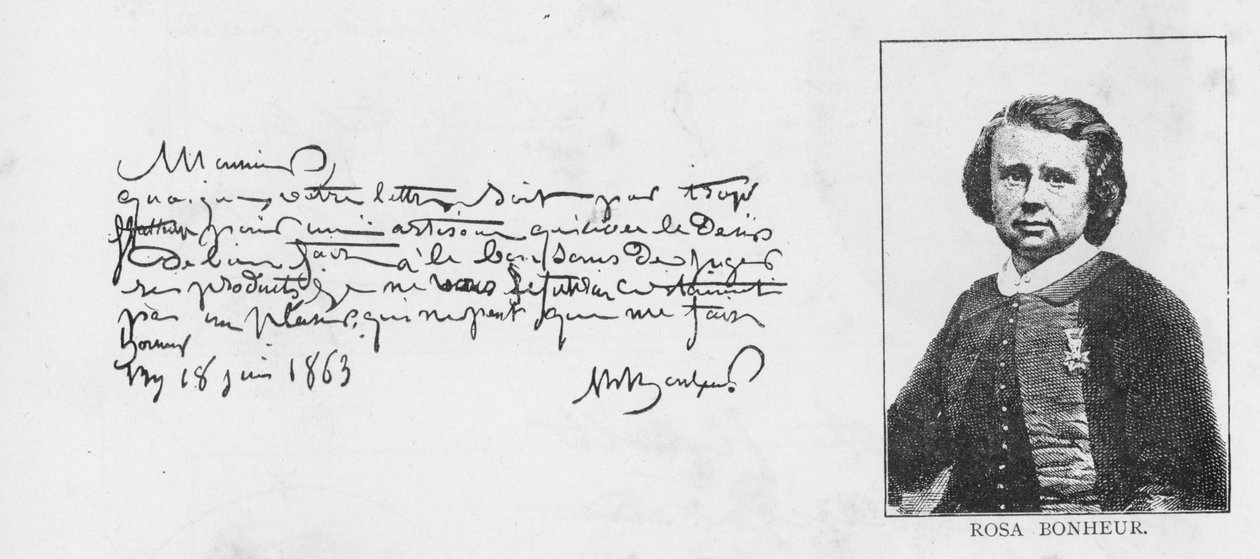 Monsieur
quoique votre lettre soit par trop
flatteuse pour un artiste qui a le Desir
De bien fair à le bon sens De juger
ses produits je ne vous
pas un plaisir, qui ne peut que me fair
honneur
By 18 juin 1863
RBonheur
ROSA BONHEUR.